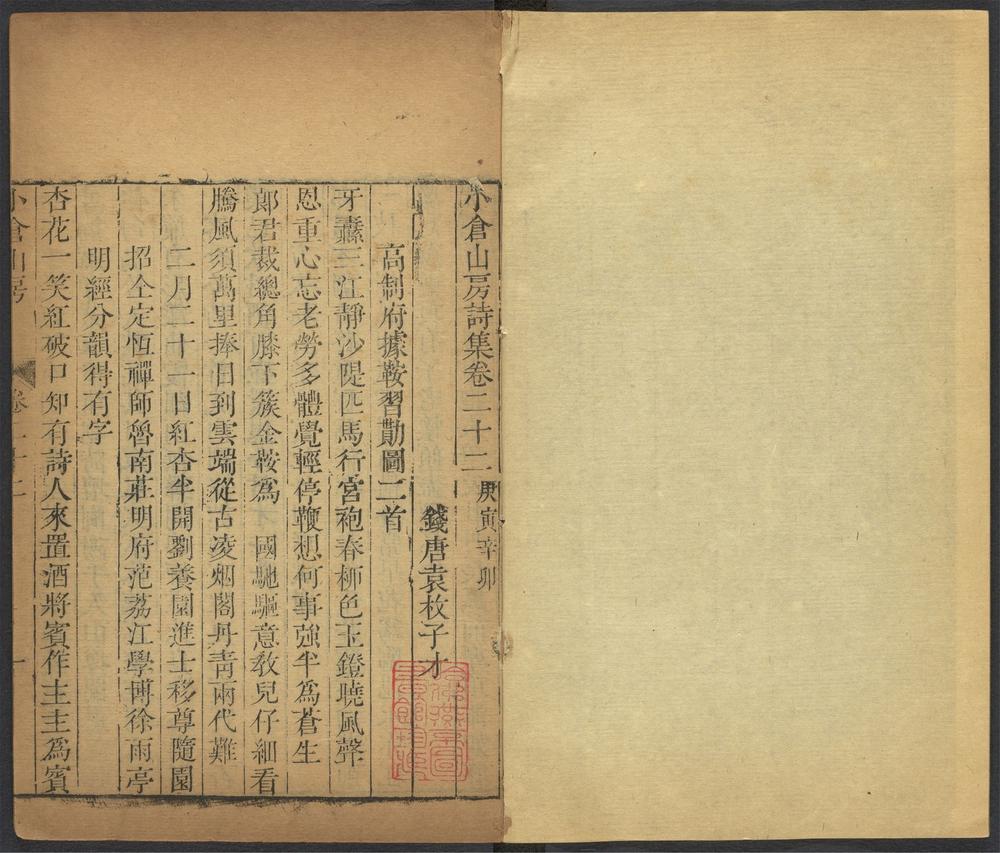 小倉山房詩集卷二十二 庚寅辛卯
錢唐袁枚子才
高制府據鞍習勩圖二首
牙纛三江靜沙隄匹馬行宮袍春柳色玉鐙曉風聲
恩重心忘老勞多體覺輕停鞭想何事強半爲蒼生
郎君裁總角膝下簇金鞍爲 國馳驅意教兒仔細看
騰風須萬里捧日到雲端從古凌烟閣丹青兩代難
二月二十一日紅杏半開劉養園進士移尊隨園
招仝定恆禪師魯南莊明府范荔江學博徐雨亭
明經分韻得有字
杏花一笑紅破口知有詩人來置酒將賓作主主爲賓
小倉山房 卷二十二 一